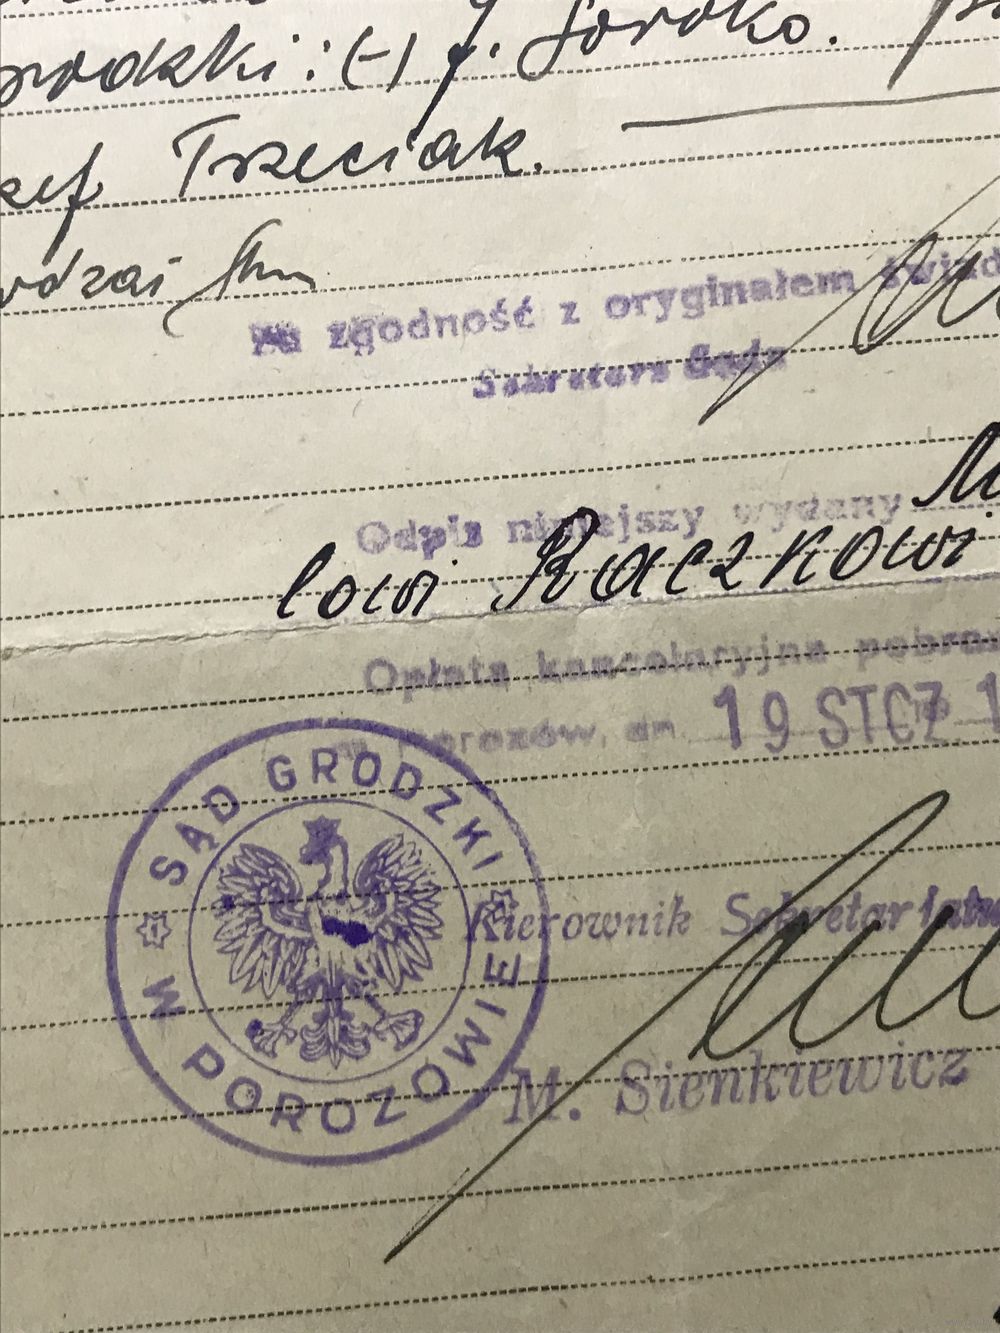 grodzki: (-) J. Soroko.
zef Trzeciak.
Za zgodność z oryginałem świad
Sekretarz Sądu
Odpis niniejszy wydany
lowi Raczkowi
Opłata kancelaryjna pobran
Porozów, dn. 19 STCZ 1
SĄD GRODZKI
W POROZOWIE
Kierownik Sekretariatu
M. Sienkiewicz